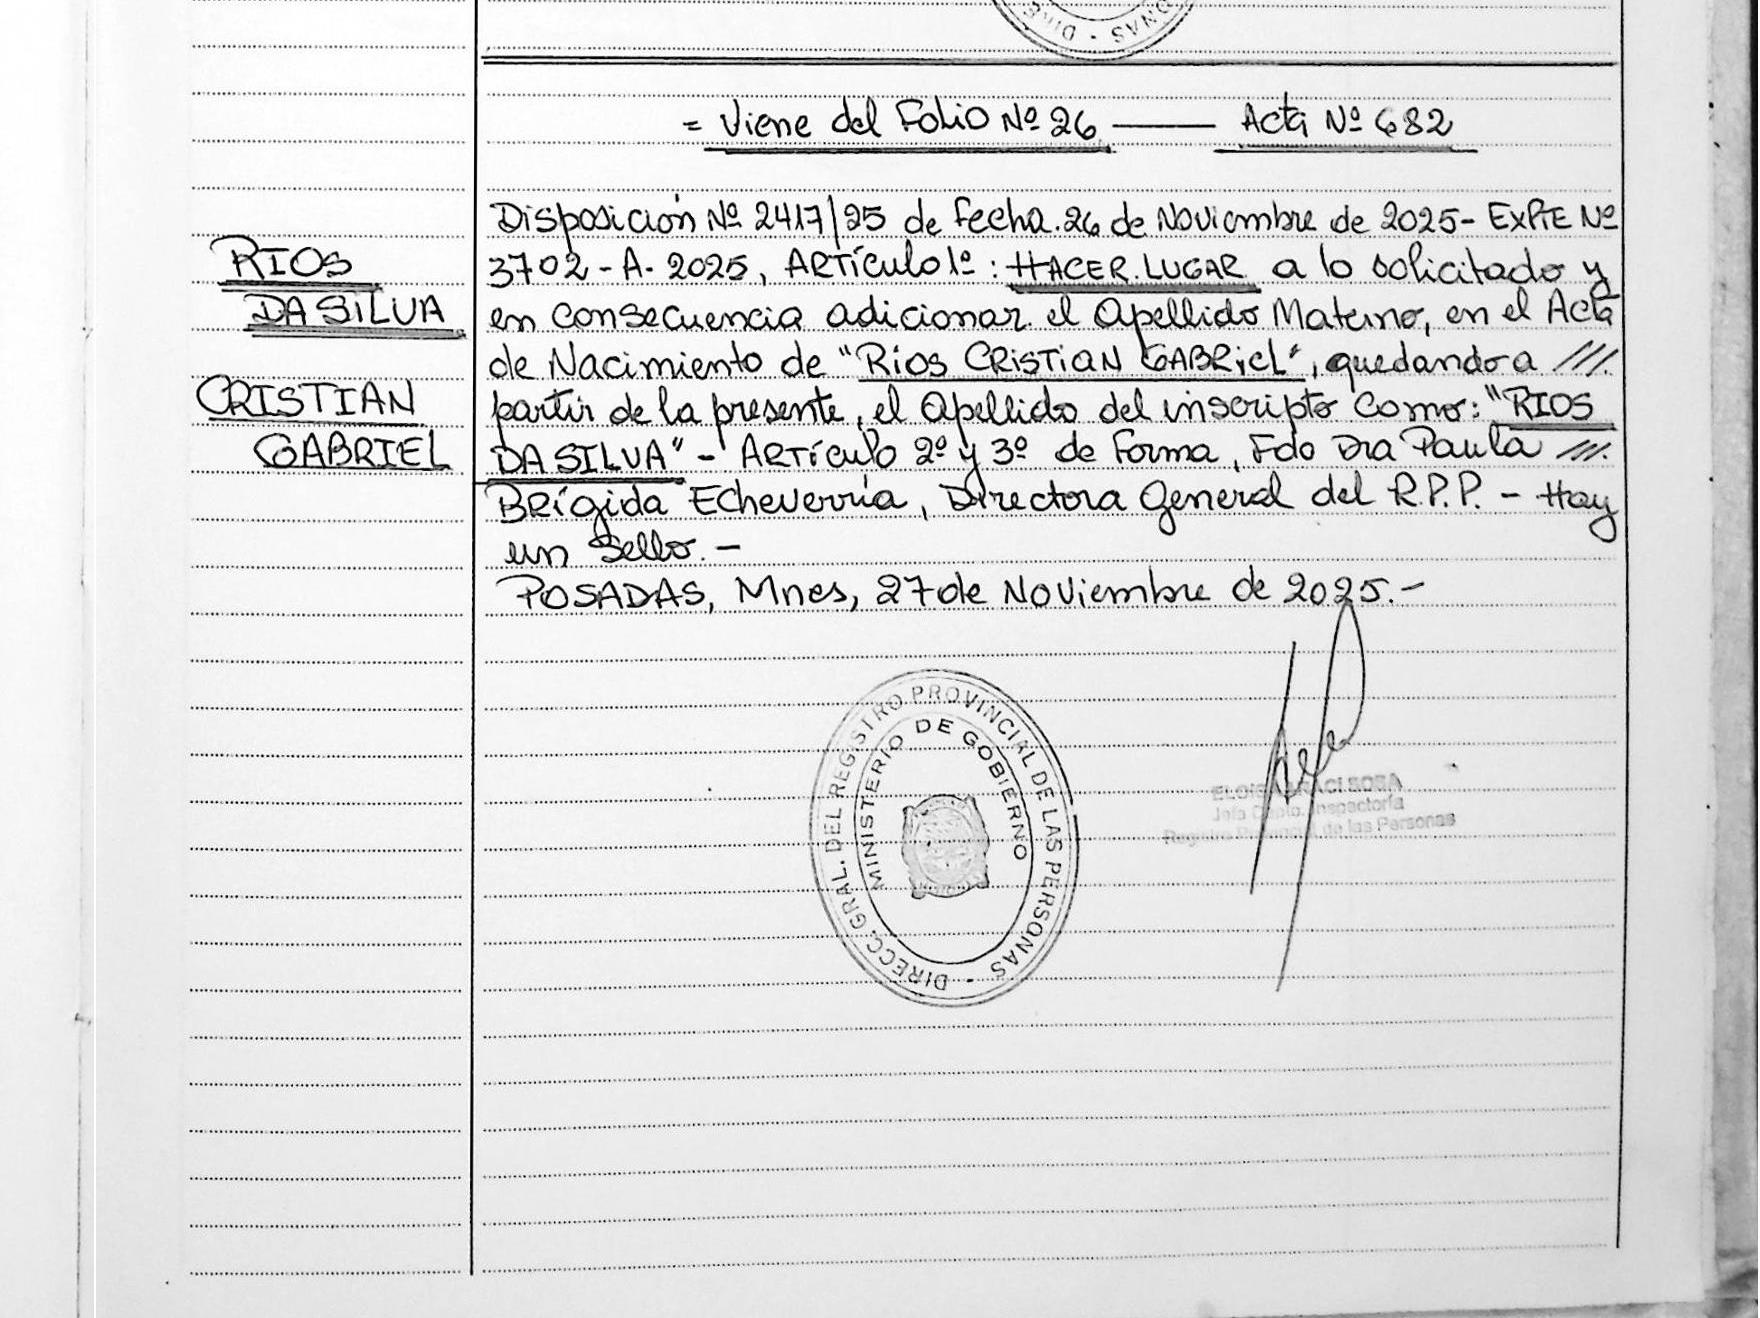 = Viene del Folio Nº 26 —— Acta Nº 682
RIOS
DA SILVA
CRISTIAN
GABRIEL
Disposición Nº 2417/25 de Fecha 26 de Noviembre de 2025 - EXPTE Nº
3702 - A - 2025, ARTículo 1º: HACER LUGAR a lo solicitado y
en consecuencia adicionar el Apellido Materno, en el Acta
de Nacimiento de "Ríos CRiSTiaN GABRieL", quedando a ///.
partir de la presente, el Apellido del inscripto como: "RIOS
DA SILVA" - ARTículo 2º y 3º de Forma, Fdo Dra Paula ///.
BRígida Echeverría, Directora General del R.P.P. - Hay
un Sello. -
POSADAS, Mnes, 27 de Noviembre de 2025. -
DIRECC. GRAL. DEL REGISTRO PROVINCIAL DE LAS PERSONAS -
MINISTERIO DE GOBIERNO
SOSA
Inspectoría
de las Personas